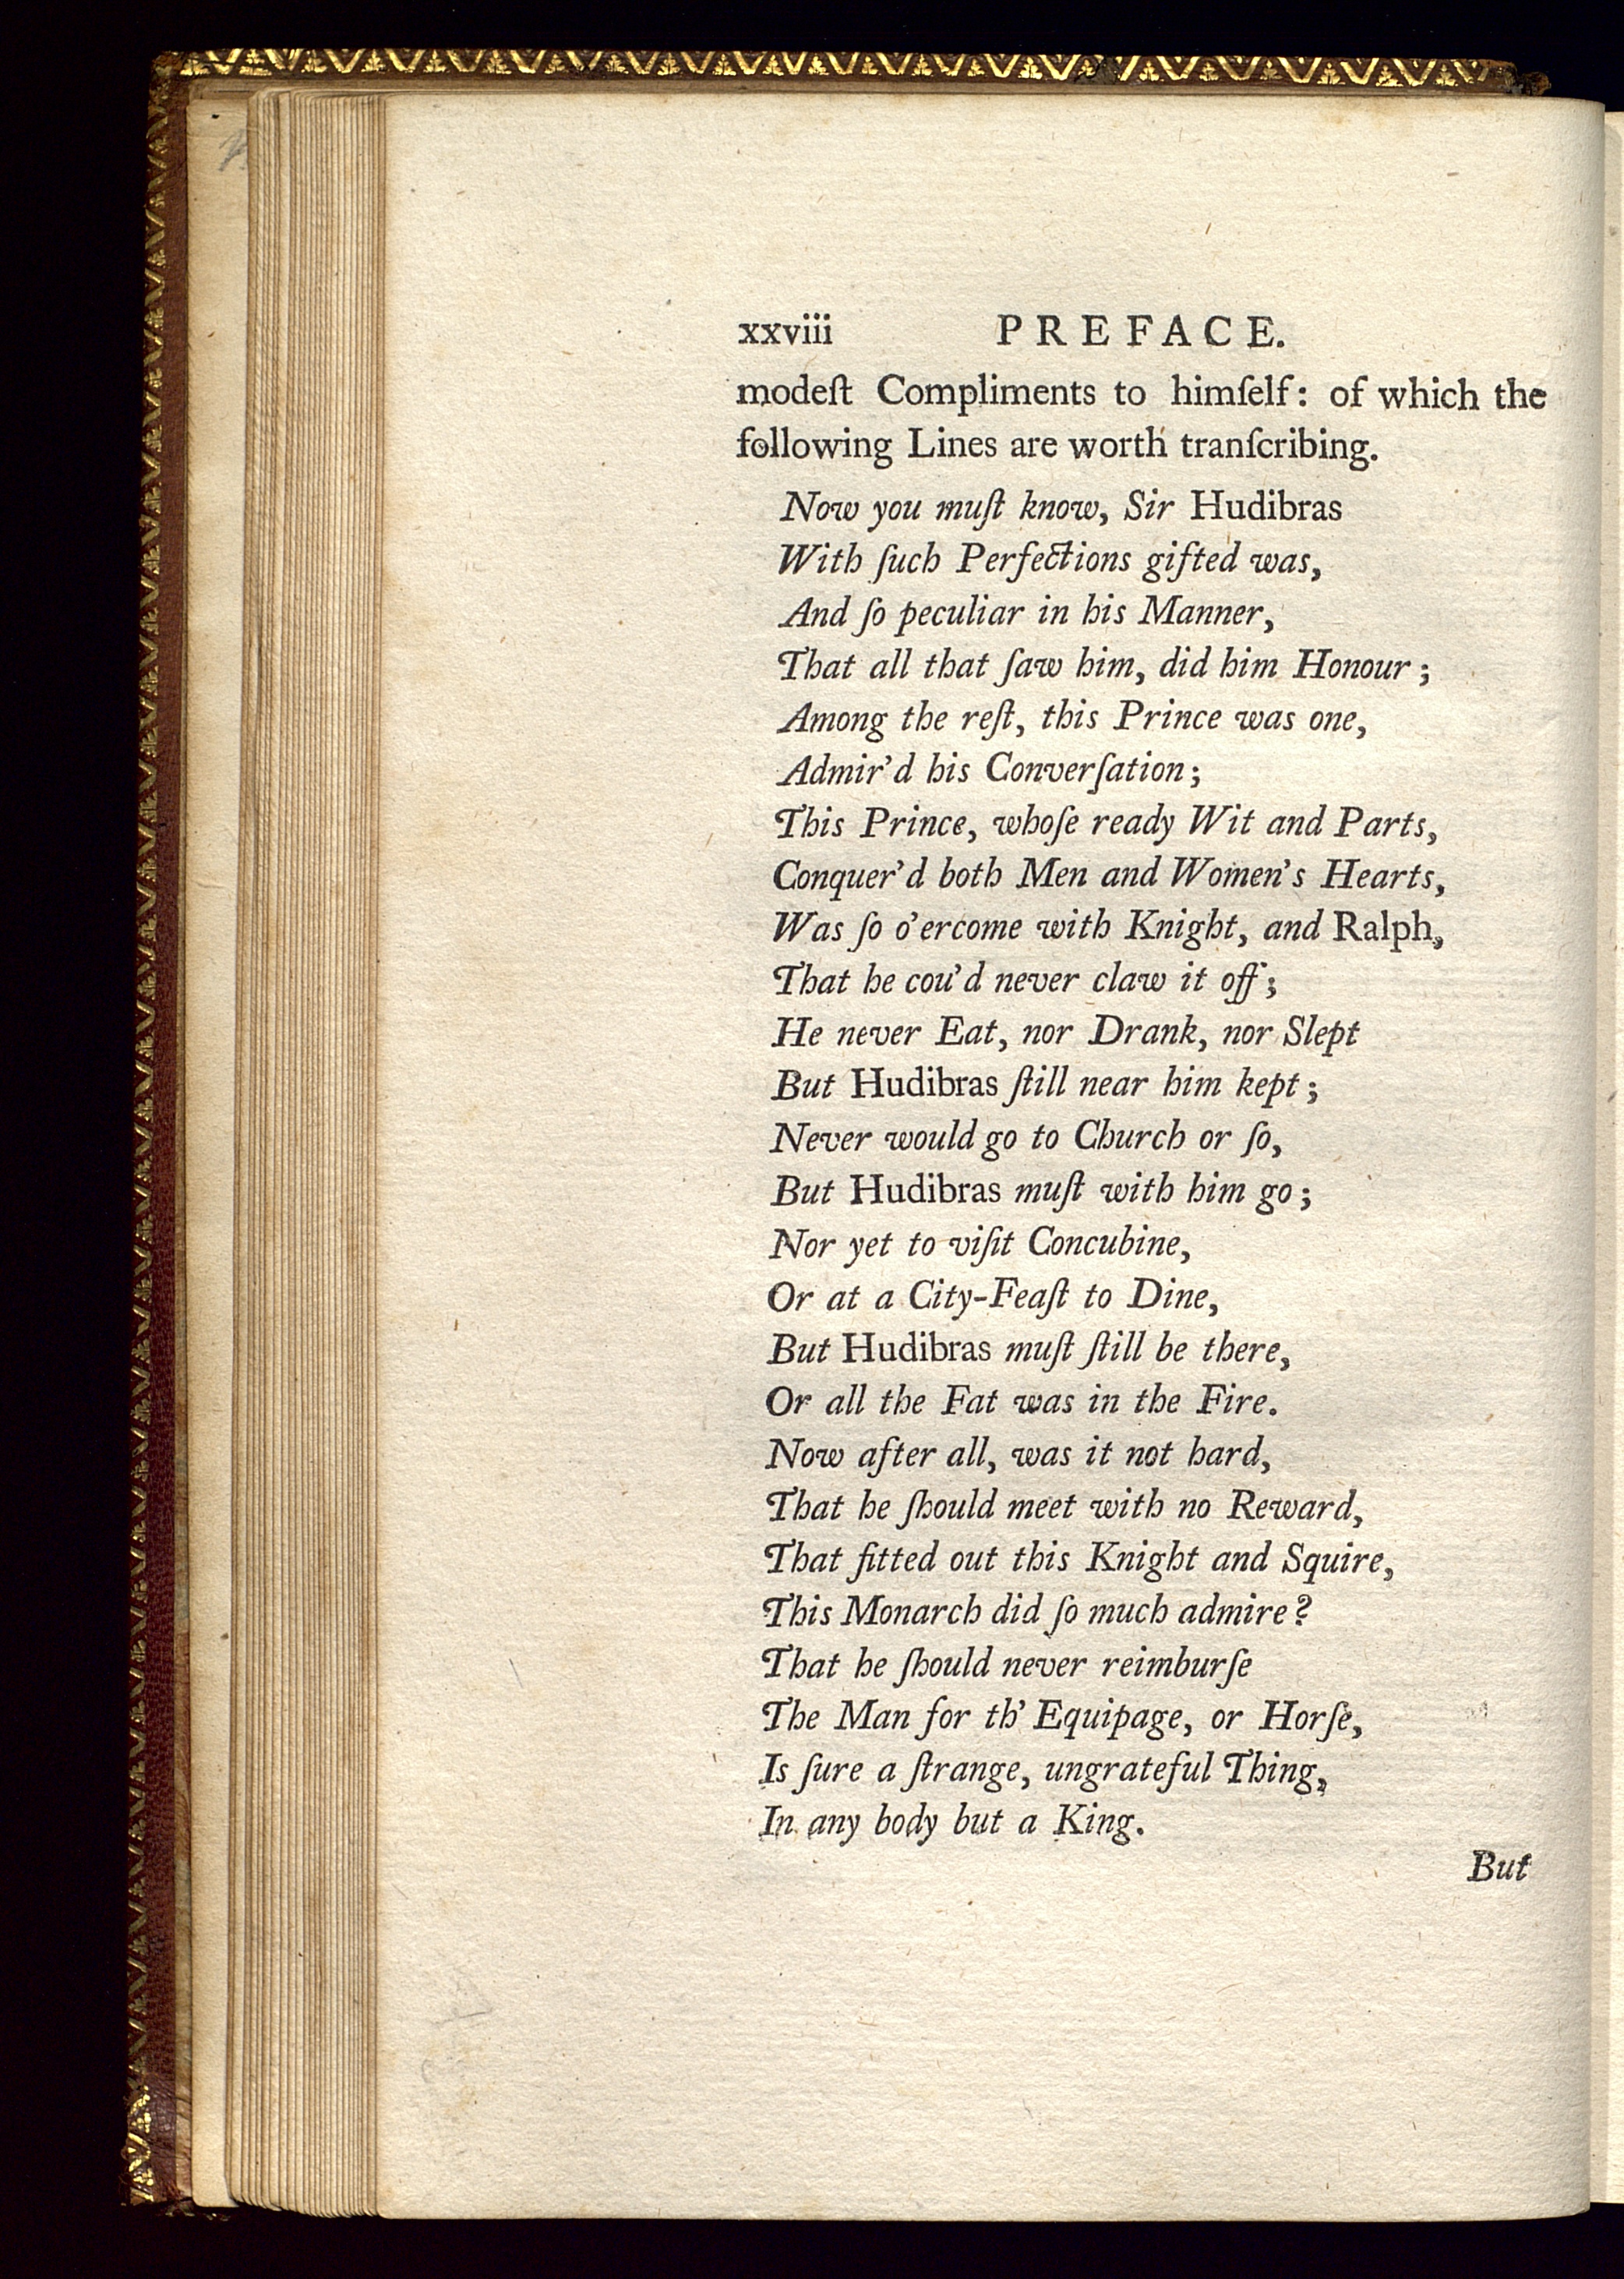 xxviii PREFACE.
modeſt Compliments to himſelf: of which the
following Lines are worth tranſcribing.
Now you muſt know, Sir Hudibras
With ſuch Perfections gifted was,
And ſo peculiar in his Manner,
That all that ſaw him, did him Honour;
Among the reſt, this Prince was one,
Admir'd his Converſation;
This Prince, whoſe ready Wit and Parts,
Conquer'd both Men and Women's Hearts,
Was ſo o'ercome with Knight, and Ralph,
That he cou'd never claw it off;
He never Eat, nor Drank, nor Slept
But Hudibras ſtill near him kept;
Never would go to Church or ſo,
But Hudibras muſt with him go;
Nor yet to viſit Concubine,
Or at a City-Feaſt to Dine,
But Hudibras muſt ſtill be there,
Or all the Fat was in the Fire.
Now after all, was it not hard,
That he ſhould meet with no Reward,
That fitted out this Knight and Squire,
This Monarch did ſo much admire?
That he ſhould never reimburſe
The Man for th' Equipage, or Horſe,
Is ſure a ſtrange, ungrateful Thing,
In any body but a King.
But